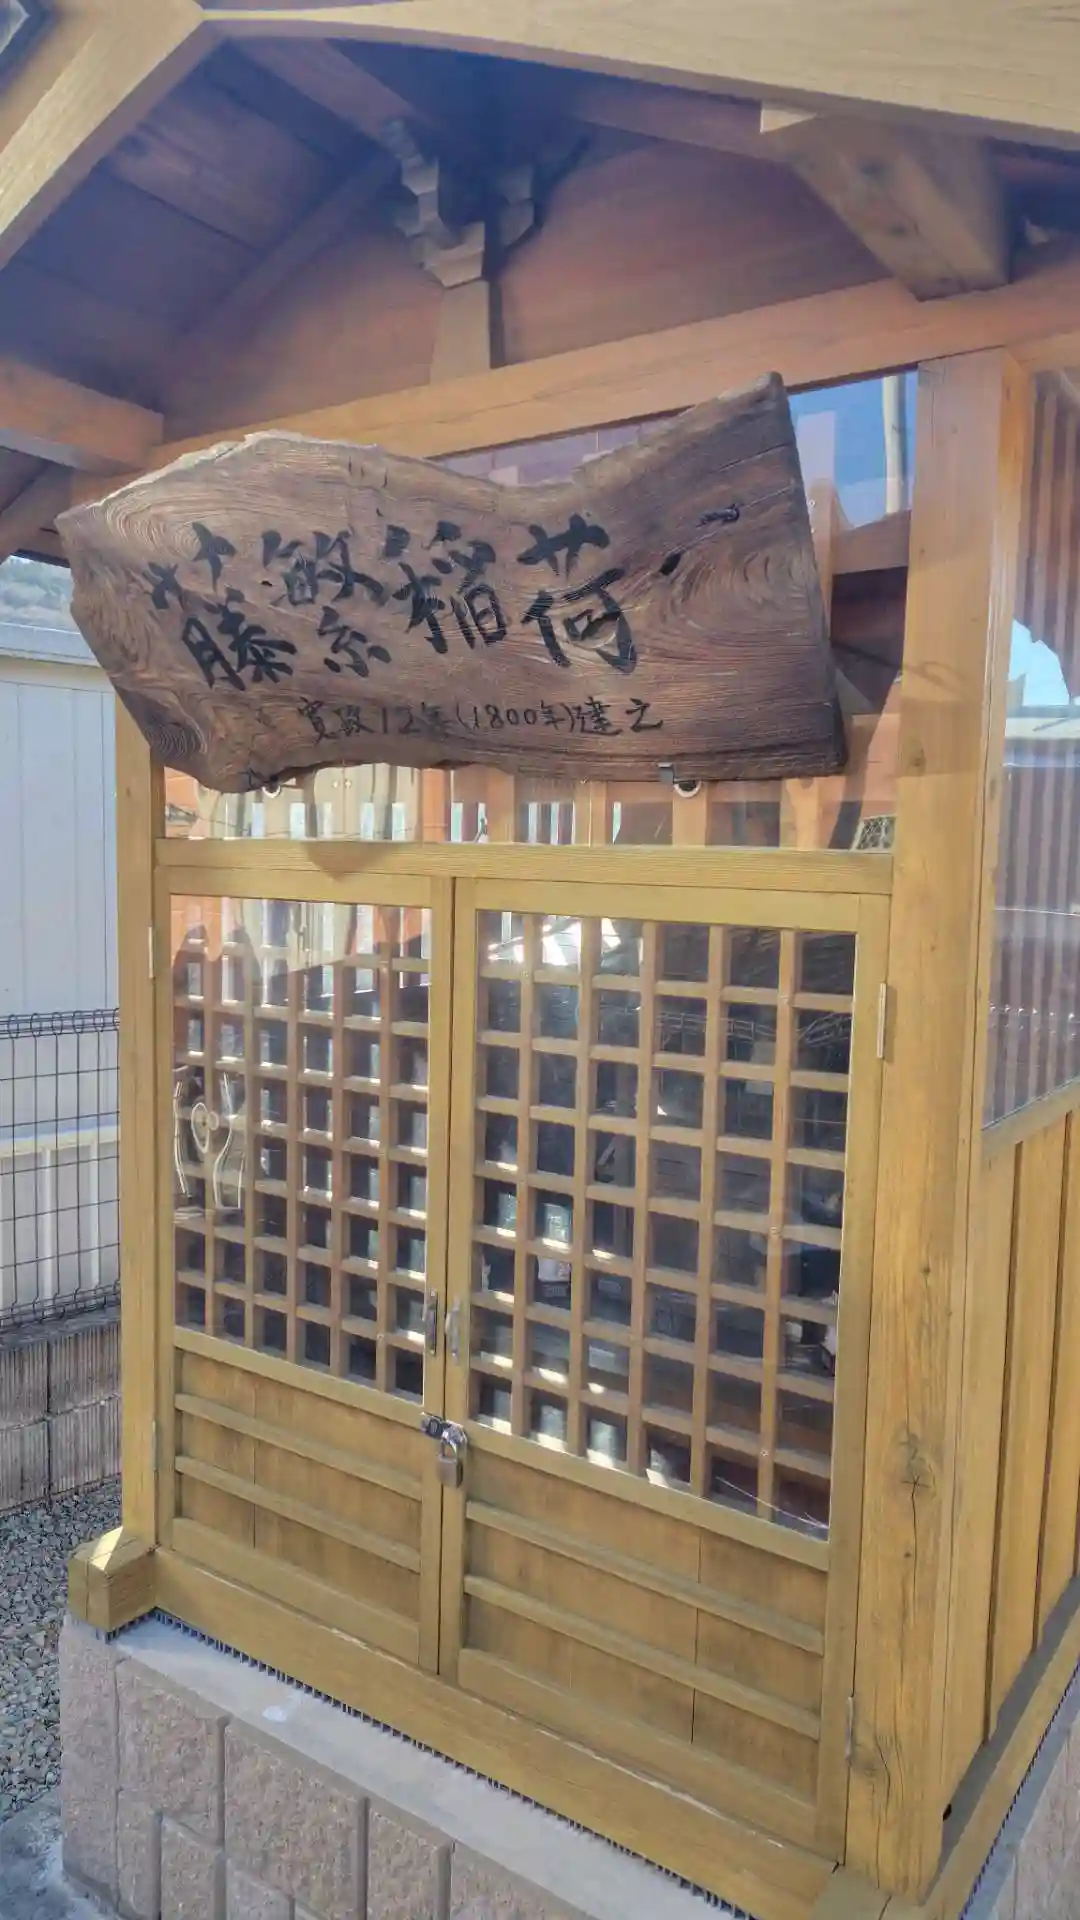 藤繁稲荷
寛政12年(1800年)建之